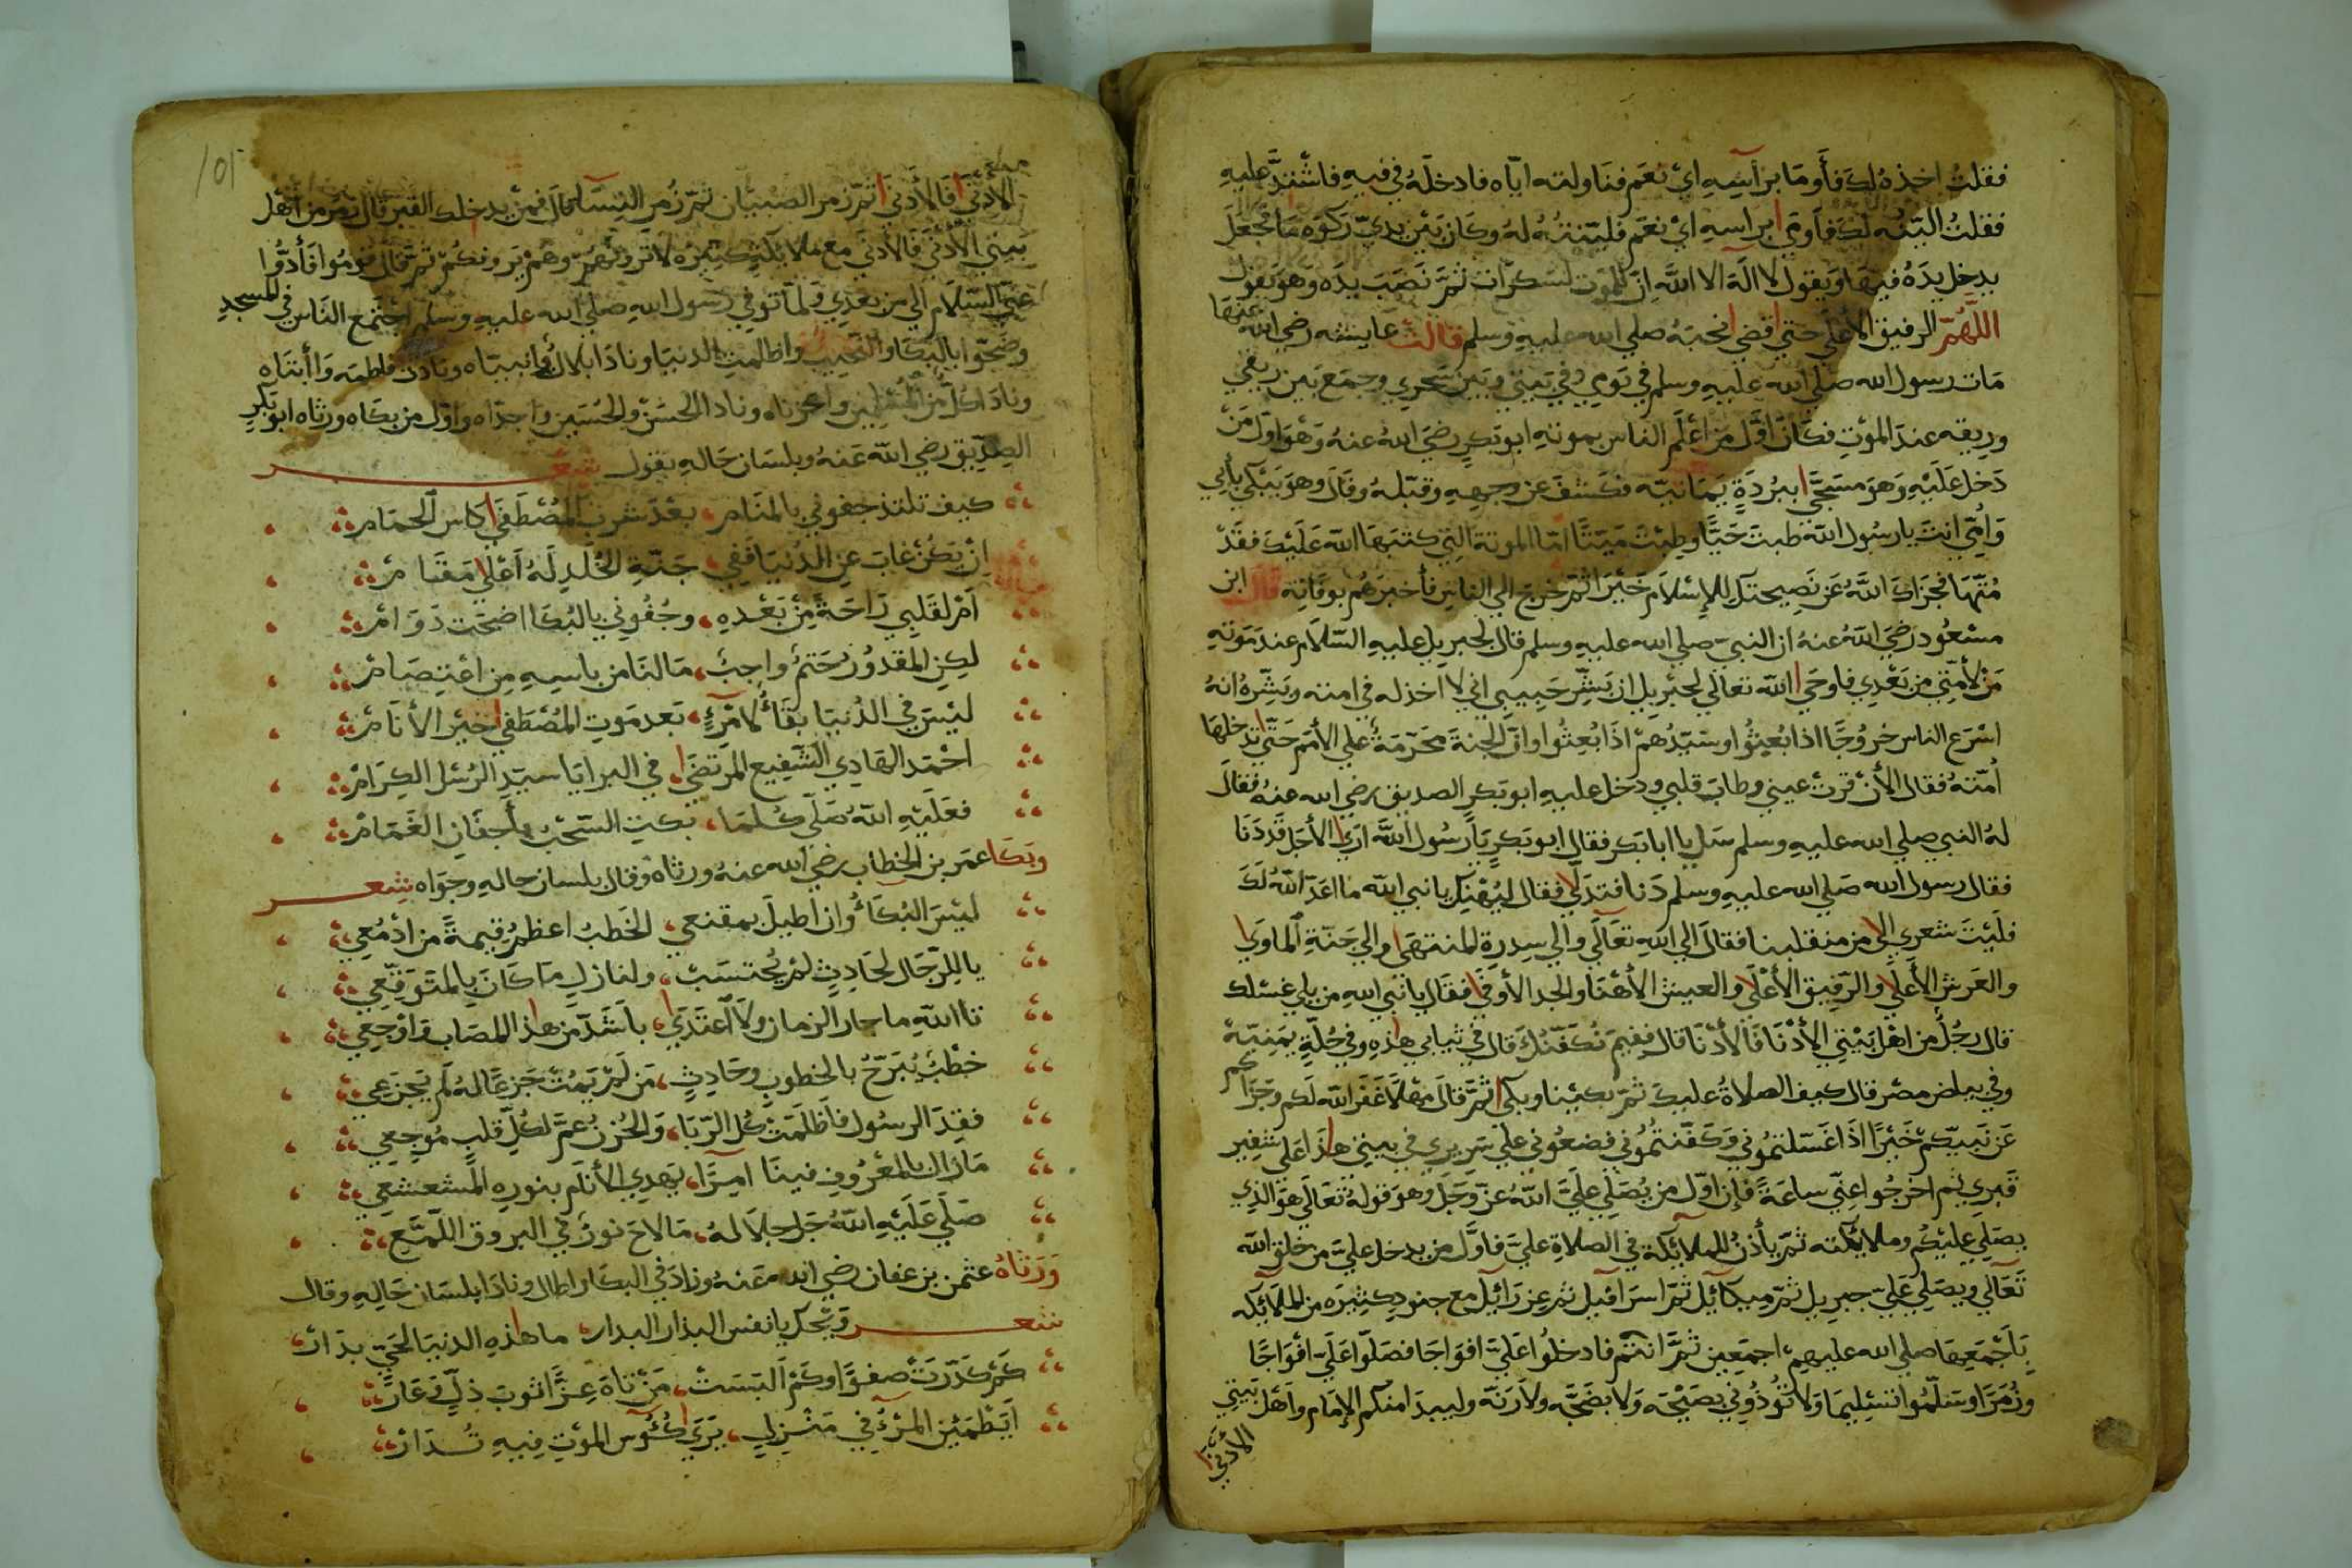 فقلت اخذه لك فأومَا برأسهِ اي نعم فناولته اياه فادخلهُ في فيهِ فاشتدّ عليهِ
فقلتُ اليّنُه لك فاَومَي ابراسهِ ايْ نعم فليّنتهُ لهُ وكان بَين يديّ رَكوَة مَا فجعَلَ
يدخل يدَهُ فيهَا وَيقول لا الَه الا اللّه اِنّ للموت لسَكرَات ثمّ نَصَبَ يدَه وَهوَ يقول
اللهُمّ الرفيق الأعلي حتي قضي نحبَهُ صلي الله عليهِ وسلم قالتْ عايشه رضي الله عنهَا
مَات رسول الله صَلي الله علَيهِ وسلم في يَومِي وفي بَيتي وبَينَ سَحري وجمَع بَين ريقي
وريقه عندَ الموْتِ فكَانَ اوّل مَن اعْلَم الناس بموتهِ ابو بَكرٍ رضيَ اللهُ عنهُ وَهْوَ اوّل مَنْ
دَخل عَلَيْهِ وَهوَ مسَجًّي ببُردَةٍ يَمَانيّه فكشفَ عن وجههِ وقبّلهُ وقَالَ وهوَ يَبْكي بأبي
وَاُمّي انتَ يارسُول اللّه طبتَ حَيًّا وطِبْتَ مَيّتًا امّا الموتة التِي كتبَهَا اللّه عَلَيْكَ فقَدْ
مُتّهَا فجزَاكَ اللّهُ عَن نَصِيحتكَ للإسْلاَم خَيْرًا ثمّ خرجَ الي الناسِ فأخبرَهُم بوفَاتِه قالَ ابن
مسْعُود رَضيَ اللهُ عنهُ ان النبيّ صلي الله عليهِ وسلم قال لجبريل عليهِ السّلاَم عندَ مَوتهِ
مَنْ لأمّتي من بَعْدِي فاوحَي اللّه تعالَي لجبْريل ان بَشّر حَبيبِي اني لا اخذله في امته وبَشّرهُ انهُ
اسْرَع الناس خروُجًا اذا بُعِثوُا وسَيّدُهمْ اذَا بُعِثوا وانّ الجنةَ محَرّمَةٌ علي الأمَم حَتّي تدخلهَا
اُمّتهُ فقال الأن قرتْ عيني وطابَ قلبي ودخل عليهِ ابو بَكرٍ الصديق رضي الله عنهُ فقالَ
لهُ النبي صلي الله عليهِ وسلم سَل يا ابا بَكر فقال ابو بَكرٍ يَا رسُول اللّهَ اَرَي الأجَل قَد دَنَا
فقال رسول الله صَلي الله عليهِ وسلم دَنا فتدَلّي فقال ليُهْنِكَ يا نبي اللّه ما اعَدّ اللّهُ لَكَ
فلَيْتَ شعري الي من منقلبنا فقالَ الي اللهِ تعَالَي والي سِدرَةِ المنتهَي والي جَنّةِ المأوَي
والعَرشِ الأعَلي والرّفِيق الأعْلَي والعيش الأهْنَا والجد الأوفَي فقَال يا نبي اللهِ من يلي غسْلك
قال رجُلٌ من اهْل بَيْتِي الأدْنَا فَالأدْنَا قال ففيمَ نُكَفّنُكَ قال في ثيابي هاذِهِ وفي حُلّةٍ يمَنِيّة
وفي بياض مصْر قال كيف الصلاةُ عليكَ ثمّ بَكيْنا وبكي ثمّ قالَ مَهْلًا غَفَرَ اللّه لكم وجَزَاكم
عَن نَبيكمْ خَيْرًا اذَا غَسَلتموُني وَكَفّنتموُني فضعُوني علَي سَريري في بيتي هاذَا علَي شفِير
قَبري ثم اخرُجوا عنّي ساعَةً فإن اوّل من يُصَلّي علَيّ اللهُ عزّ وَجلّ وهوَ قولهُ تعَالَي هوَ الذِي
يصَلي عليكُم وملائكته ثمّ يأذنُ للملائِكة في الصلاةِ علَيّ فأوّل من يدخل علَيّ من خلق اللّه
تعَالي ويصَلي عَلَيّ جبريل ثمّ ميكآئيل ثمّ اسرَافيل ثم عِزرَائيل مع جنودٍ كثِيرَه من الملآئكه
بأجْمَعهَا صلي الله عليهِمْ اجمَعِين ثمّ انتم فادخلُوا علَيّ افوَاجًا فصَلّوا علَيّ افْوَاجًا
وزُمَرًا وسَلّمُوا تسْليمَا وَلاَ تؤُذوُني بصَيْحَه وَلاَ بضَجّه ولاَ رَنّه وليبدَا منكم الإمَام واَهل بَيتِي
الأدني
الأدْنَي فَالأدنَي ثمّ زُمر الصبيَان ثمّ زُمر النسَآء قالَ فمن يدخلك القبر قال زمر من اهْل
بَيتي الأدْنَي فَالأدنَي مع ملائكةٍ كثِيره لاَ ترَونَهُمْ وهمْ يَرونكمْ ثمّ قالَ قوُمُوا فأدّوُا
عني السّلاَم الي من بَعْدِي وَلَمّا توفي رَسُول اللهِ صَلي الله عليهِ وسلم اجتَمع النّاس في المسجدِ
وضجّوا بالبكَا والنحِيب واظلمتِ الدنيَا ونادَا بلالٌ وانبيّاه ونادَتْ فاطمه وَا أبتَاه
ونادَا كلّ من المسْلمِين واحُزناه ونادا الحسَنْ والحُسَين واجدّاه واوّل من بكاه ورثاه ابو بَكرِ
الصِدّيق رضي اللّه عَنهُ وبلسَان حَالهِ يقول شعر
كيف تلتذ جفوني بالمنَام، بعْدَ شرب المُصْطَفَي كاس الحمَام
اِنْ يَكُنْ غابَ عن الدُنيَا فَفِي، جَنّةِ الخُلْدِ لَهُ اَعْلي مَقَام
اَمْ لقَلبِي رَاحَةٌ مِنْ بَعْدهِ، وجُفُوني بالبُكا اضحَت دَوَامْ
لكِن المقدُوُر حَتمٌ واجبٌ، مَا لنَا من باسهِ مِن اعْتِصَامْ
ليْسَ في الدُنيَا بقَاءٌ لامْرءٍ، بَعد مَوتِ المُصْطَفي خيْر الأنَامْ
احْمَد الهَادِي الشّفِيع المرْتَضَي، في البرايَا سيّد الرُسْل الكِرَامْ
فعَلَيْهِ اللّهُ صَلّي كلمَا، بكيَت السّحْبُ بأَجفَانِ الغَمَامْ
وبَكَا عمَر بن الخطاب رضي الله عنهُ ورثاهُ وقال بلسان حالهِ وجوَاه شعر
ليْسَ البُكَاءُ وَان اطيلَ بمقنعي، الخَطبُ اعظمُ قيمَةً من ادْمُعِي
يا للرّجَال لحَادِثٍ لمْ يُحتسَبْ، ولنازلٍ مَا كَانَ بالمتَوَقّعِي
تا اللهِ ما جار الزمان ولاَ اعتَدَي، باَشَدّ من هاذا المصَاب وَاوْجعِي
خطْبٌ يُبَرّحُ بالخطوبِ وحَادِثٍ، مَن لَمْ يَمُتْ جَزعًا لهُ لَم يَجزَعِي
فقِدَ الرسُول فاَظلَمَتْ كُل الرّبَا، وَالحُزنُ عمّ لكلّ قلبٍ مُوجعِي
مَازال بالمعْرُوفِ فينَا امِرًا، يَهدِي الأنَام بنورهِ المشعشعِي
صَلّي عَلَيْهِ اللّهُ جَل جلاَلهُ، مَا لاَحَ نورٌ في البروق اللّمّع
وَرَثاهُ عثمن بن عفان رضي الله عَنهُ وزادَ في البكا واطال ونادَا بلسَان حَالهِ وقال
شعر ويْحكَ يا نفس البدار البدار، ما هاذهِ الدنيَا لحَيّ بدَارْ
كَمْ كَدّرَتْ صفوًا وكَمْ اَلبسَتْ، مَنْ تاهَ عِزًا ثوبَ ذلّ وَعَارْ
اَيَطْمَئن المرْءُ في مَنْزِلٍ، يَرَي كُؤُس الموْتِ فِيهِ تُدَارْ